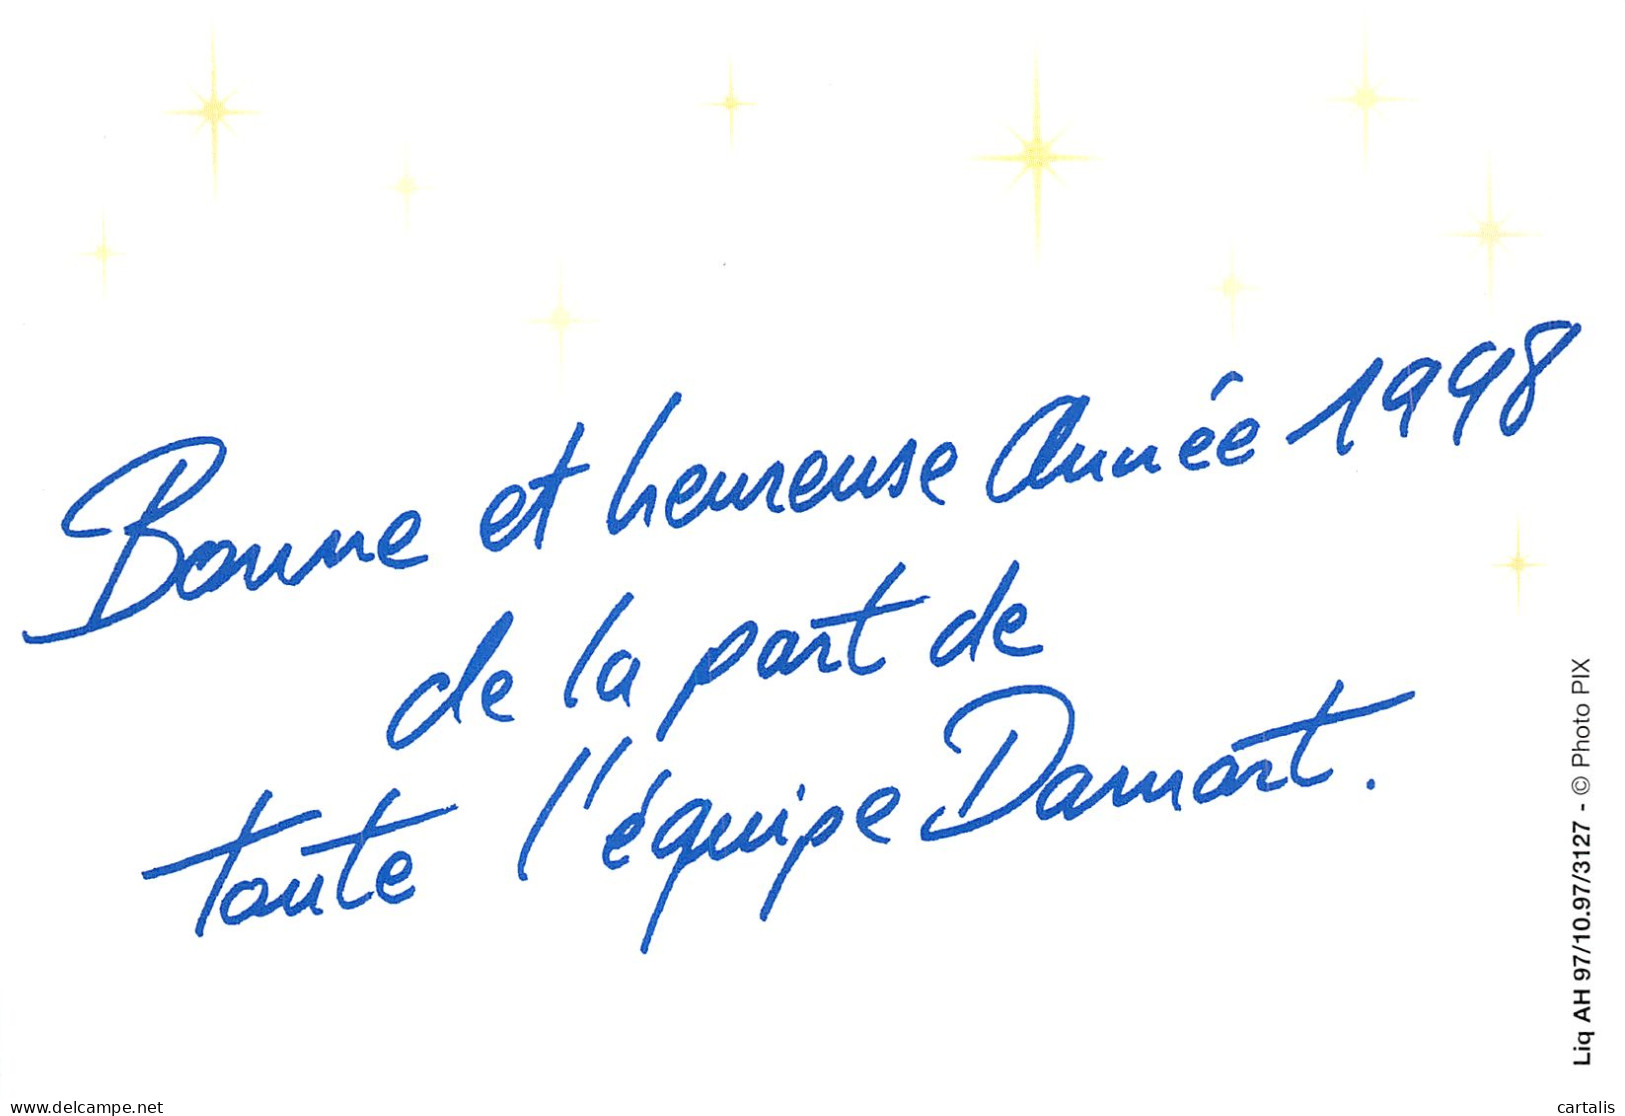 Bonne et heureuse Année 1998
de la part de
toute l'équipe Damart.
Liq AH 97/10.97/3127 - © Photo PIX
www.delcampe.net
cartalis